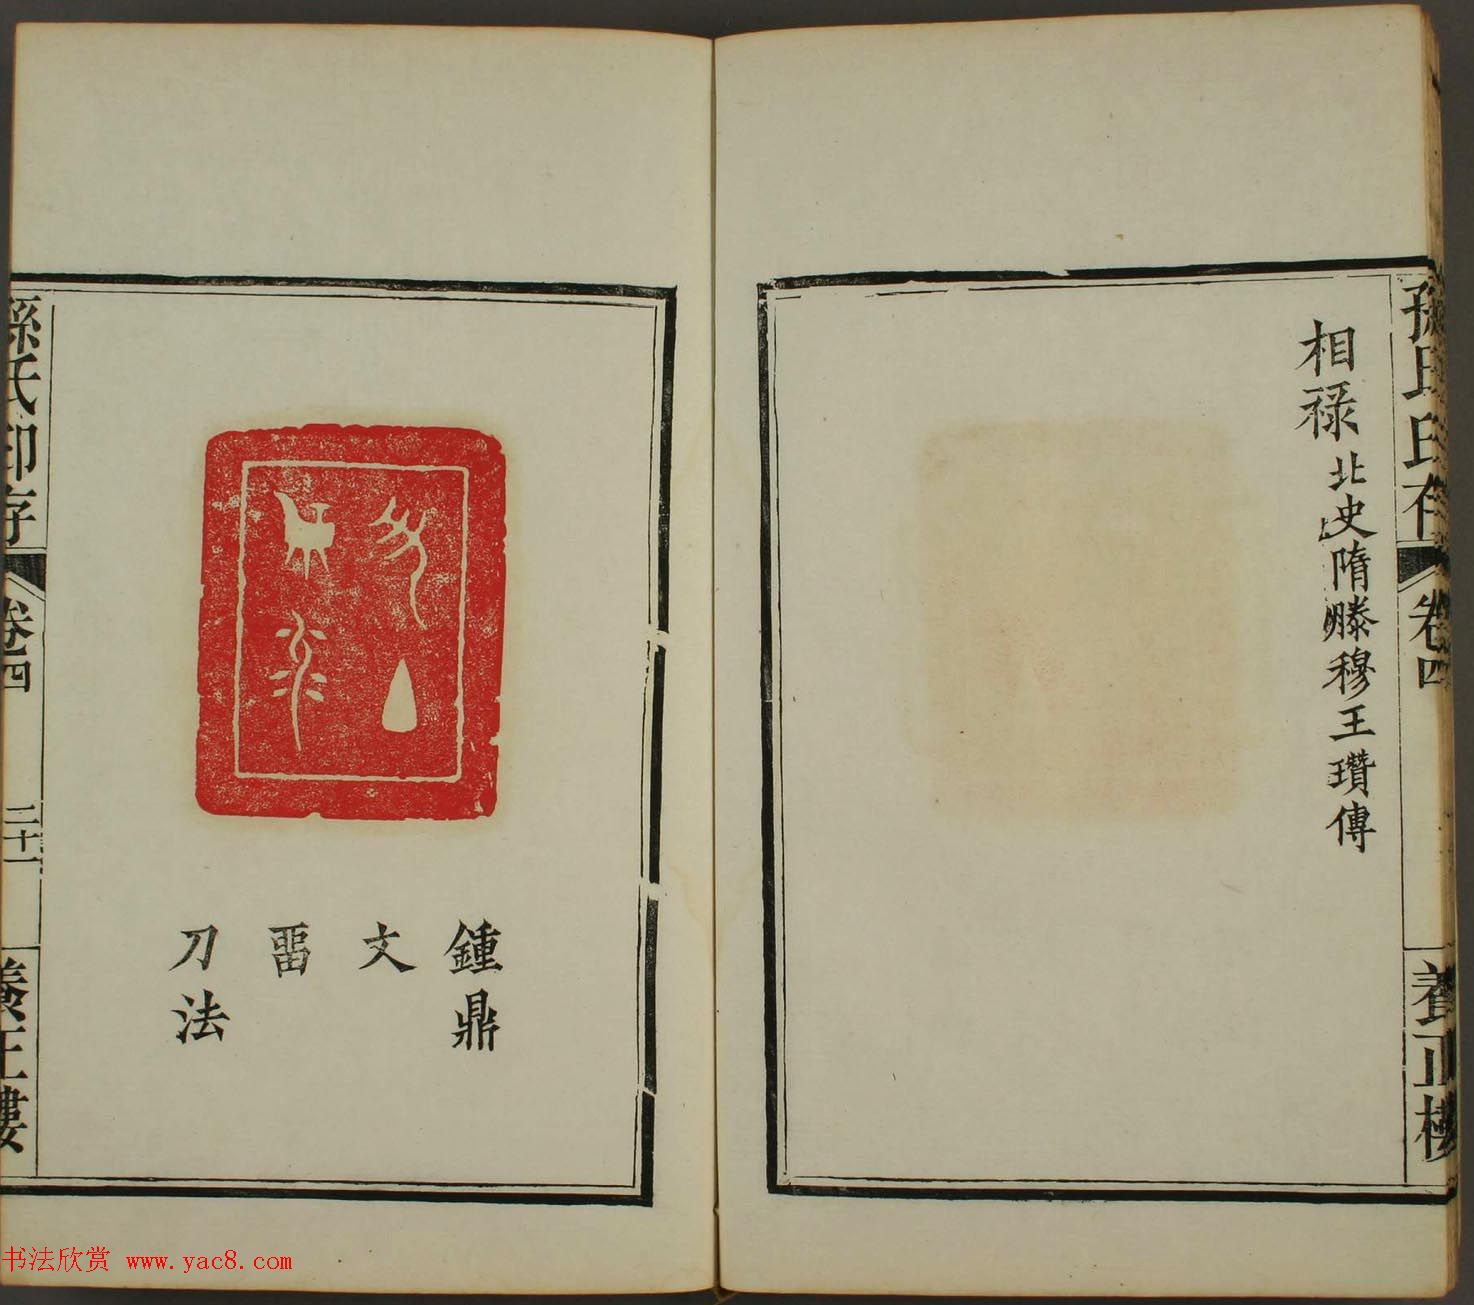 孫氏印存
卷四
養正樓
相祿 北史隋滕穆王瓚傳
鍾鼎
文
畱
刀法
孫氏印存
卷四
二十一
養正樓
书法欣赏 www.yac8.com